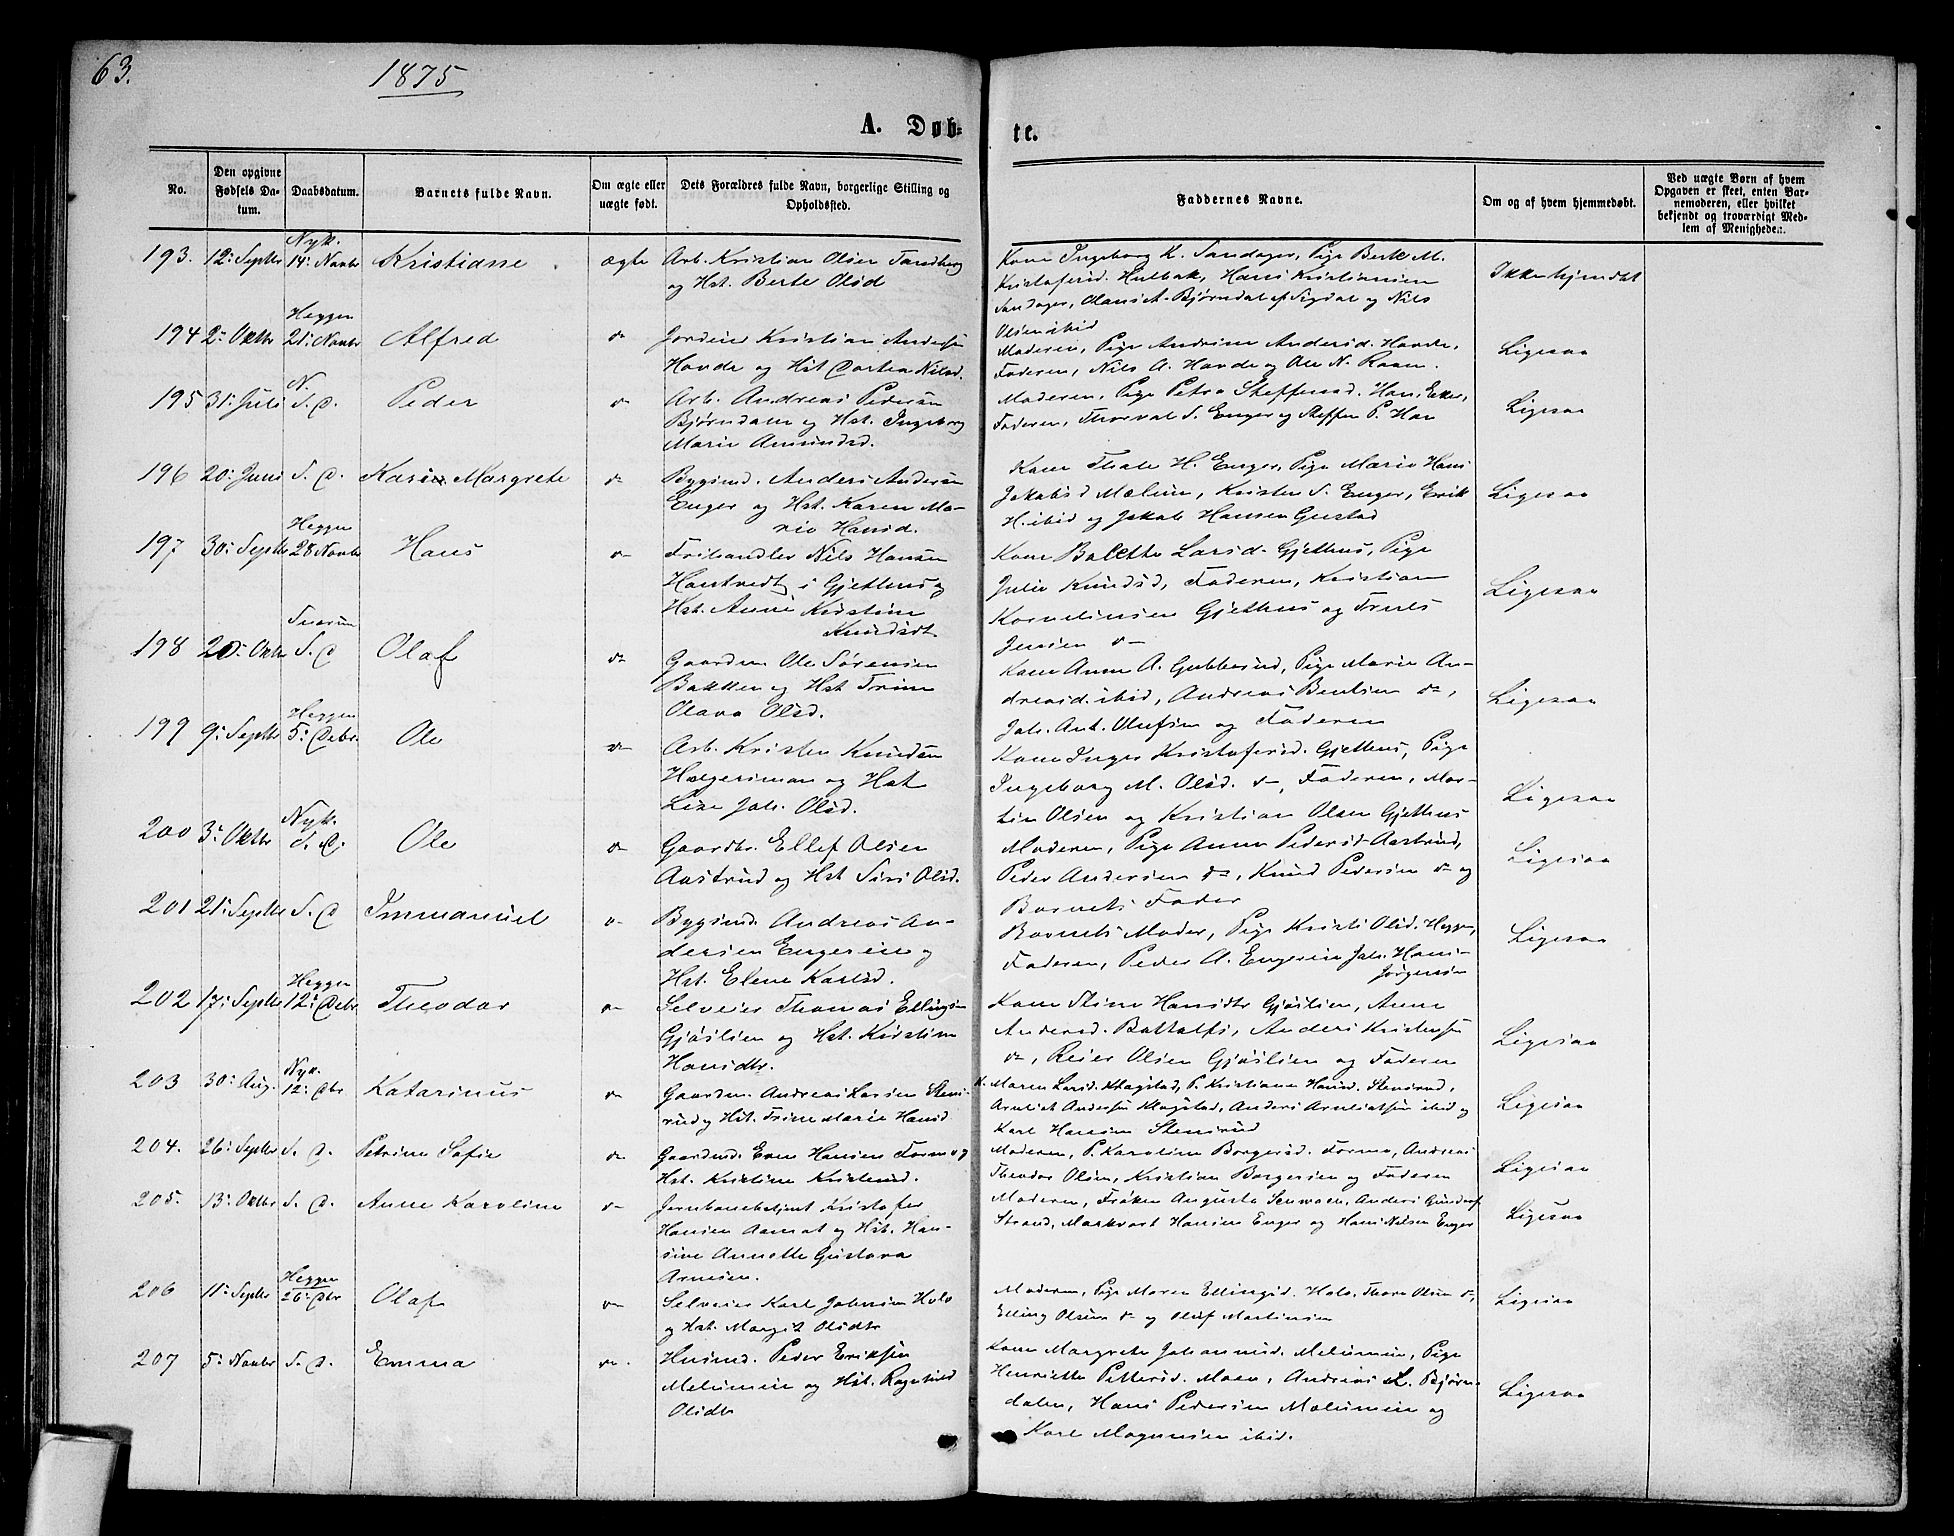 63.
1875
A. Døb-
te.
No.
Den opgivne Fødsels Da-tum.
Daabsdatum.
Barnets fulde Navn.
Om ægte eller uægte født.
Dets Forældres fulde Navn, borgerlige Stilling og Opholdsted.
Faddernes Navne.
Om og af hvem hjemmedøbt.
Ved uægte Børn af hvem Opgaven er skeet, enten Bar-nemoderen, eller hvilket bekjendt og troværdigt Med-lem af Menigheden.
193. 12' Septbr Nyk. 14' Novbr Kristiane ægte Arb. Kristian Olsen Sandberg
og Hst. Berte Olsd
Kone Ingeborg K. Sandager, Pige Berte M.
Kristofersd. Hulbak, Hans Kristiansen
Sandager, Bjørndal af Sigdal og Nils
Olsen ibid
Ikke hjemdbt
194 2' Oktbr Heggen 21' Novbr Alfred d- Jordeier Kristian Andersen
Hovde og Hst Dortea Nilsd.
Moderen, Pige Andrine Andersd. Hovde,
Faderen, Nils A. Hovde og Ole N. Raaen.
Ligesaa
195 31' Juli N. S. D. Peder d- Arb. Andreas Pedersen
Bjørndalen og Hst. Ingeborg
Marie Amundsd.
Moderen, Pige Petra Steffensd. Han, Eker,
Faderen, Thorval S. Enger og Steffen P. Han
Ligesaa
196 20' Juni S. D. Karen Margrete d- Bygselmd. Anders Andersen
Enger og Hst. Karen Ma-
rie Hansd.
Kone Thale H. Enger, Pige Marie Hans
Jakobsd Mælum, Kristen S. Enger, Erik
H. ibid og Jakob Hansen Gustad
Ligesaa
197 30' Septbr Heggen 28 Novbr Hans d- Frihandler Nils Hansen
Hantvedt i Gjethus og
Hst. Anne Kristine
Knudsdt.
Kone Bolette Larsd. Gjethus, Pige
Julie Knudsd, Faderen, Kristian
Kornelinsen Gjethus og Truls
Jensen d-
Ligesaa
198 20' Oktbr Snarum S. D Olaf d- Gaardm. Ole Sørensen
Bakken og Hst Trine
Olava Olsd.
Kone Anne A. Gubberud, Pige Marie An-
dreasd. ibid, Andreas Bentsen d-,
Joh. Ant. Olufsen og Faderen
Ligesaa
199 9' Septbr Heggen 5' Debr. Ole d- Arb. Kristen Knudsen
Holgersmoen og Hst
Lise Joh. Olsd.
Kone Inger Kristofersd. Gjethus, Pige
Ingeborg M. Olsd. d-, Faderen, Mar-
tin Olsen og Kristian Olsen Gjethus
Ligesaa
200 3' Oktbr Nyk. S. D. Ole d- Gaardbr. Ellef Olsen
Aastrud og Hst Siri Olsd.
Moderen, Pige Anne Pedersd. Aastrud,
Peder Andersen d-, Knud Pedersen d- og
Barnets Fader
Ligesaa
201 21' Septbr S. D Immanuel d- Bygselmd. Andreas An-
dersen Engerein og
Hst. Elene Karlsd.
Barnets Moder, Pige Kristi Olsd. Heggen,
Faderen, Peder A. Engerein Joh. Hans
Jørgensen
Ligesaa
202 17' Septbr Heggen 12' Debr Theodor d- Selveier Thomas Ellingsen
Gjøslien og Hst. Kristine
Hansdtr.
Kone Stine Hansdtr Gjøslien, Anne
Andersd. Battalfs, Anders Kristensen
d-, Reier Olsen Gjøslien og Faderen
Ligesaa
203 30' Aug. Nyk. 12' Dbr Katarinus d- Gaardm. Andreas Larsen Stens-
rud og Hst. Trine Marie Hansd
K. Maren Larsd. Kløgstad, P. Kristiane Hansd. Stensrud,
Arnliot Andersen Kløgstad, Anders Arnliotsen ibid og
Karl Hansen Stensrud
Ligesaa
204. 26' Septbr S. D. Petrine Sofie d- Gaardmd. Even Hansen Formo og
Hst. Kristine Kristensd.
Moderen, P. Karoline Borgersd. Formo, Andreas
Theodor Olsen, Kristian Borgersen og Faderen
Ligesaa
205. 13' Oktbr S. D. Anne Karoline d- Jernbanebetjent Kristofer
Hansen Aamot og Hst. Han-
sine Annette Gustava
Arnesen.
Moderen, Frøken Augusta Anders Gundersen
Strand, Markvart Hansen Enger og Hans Nilsen Enger
Ligesaa
206 11' Septbr Heggen 26' Dbr Olaf d- Selveier Karl Johnsen Hole
og Hst. Margit Olsdtr
Moderen, Pige Maren Ellingsd. Hole, Thore Olsen d-,
Elling Olsen d- og Oluf Martinsen
Ligesaa
207 5' Novbr S. D. Emma d- Husmd. Peder Eriksen
Melumeie og Hst. Ragnhild
Olsdtr
Kone Margrete Johannesd. Melumeie, Pige
Henriette Pettersd. Moen, Andreas L. Bjørn-
dalen, Hans Pedersen Melumeie og
Karl Mogensen ibid.
Ligesaa